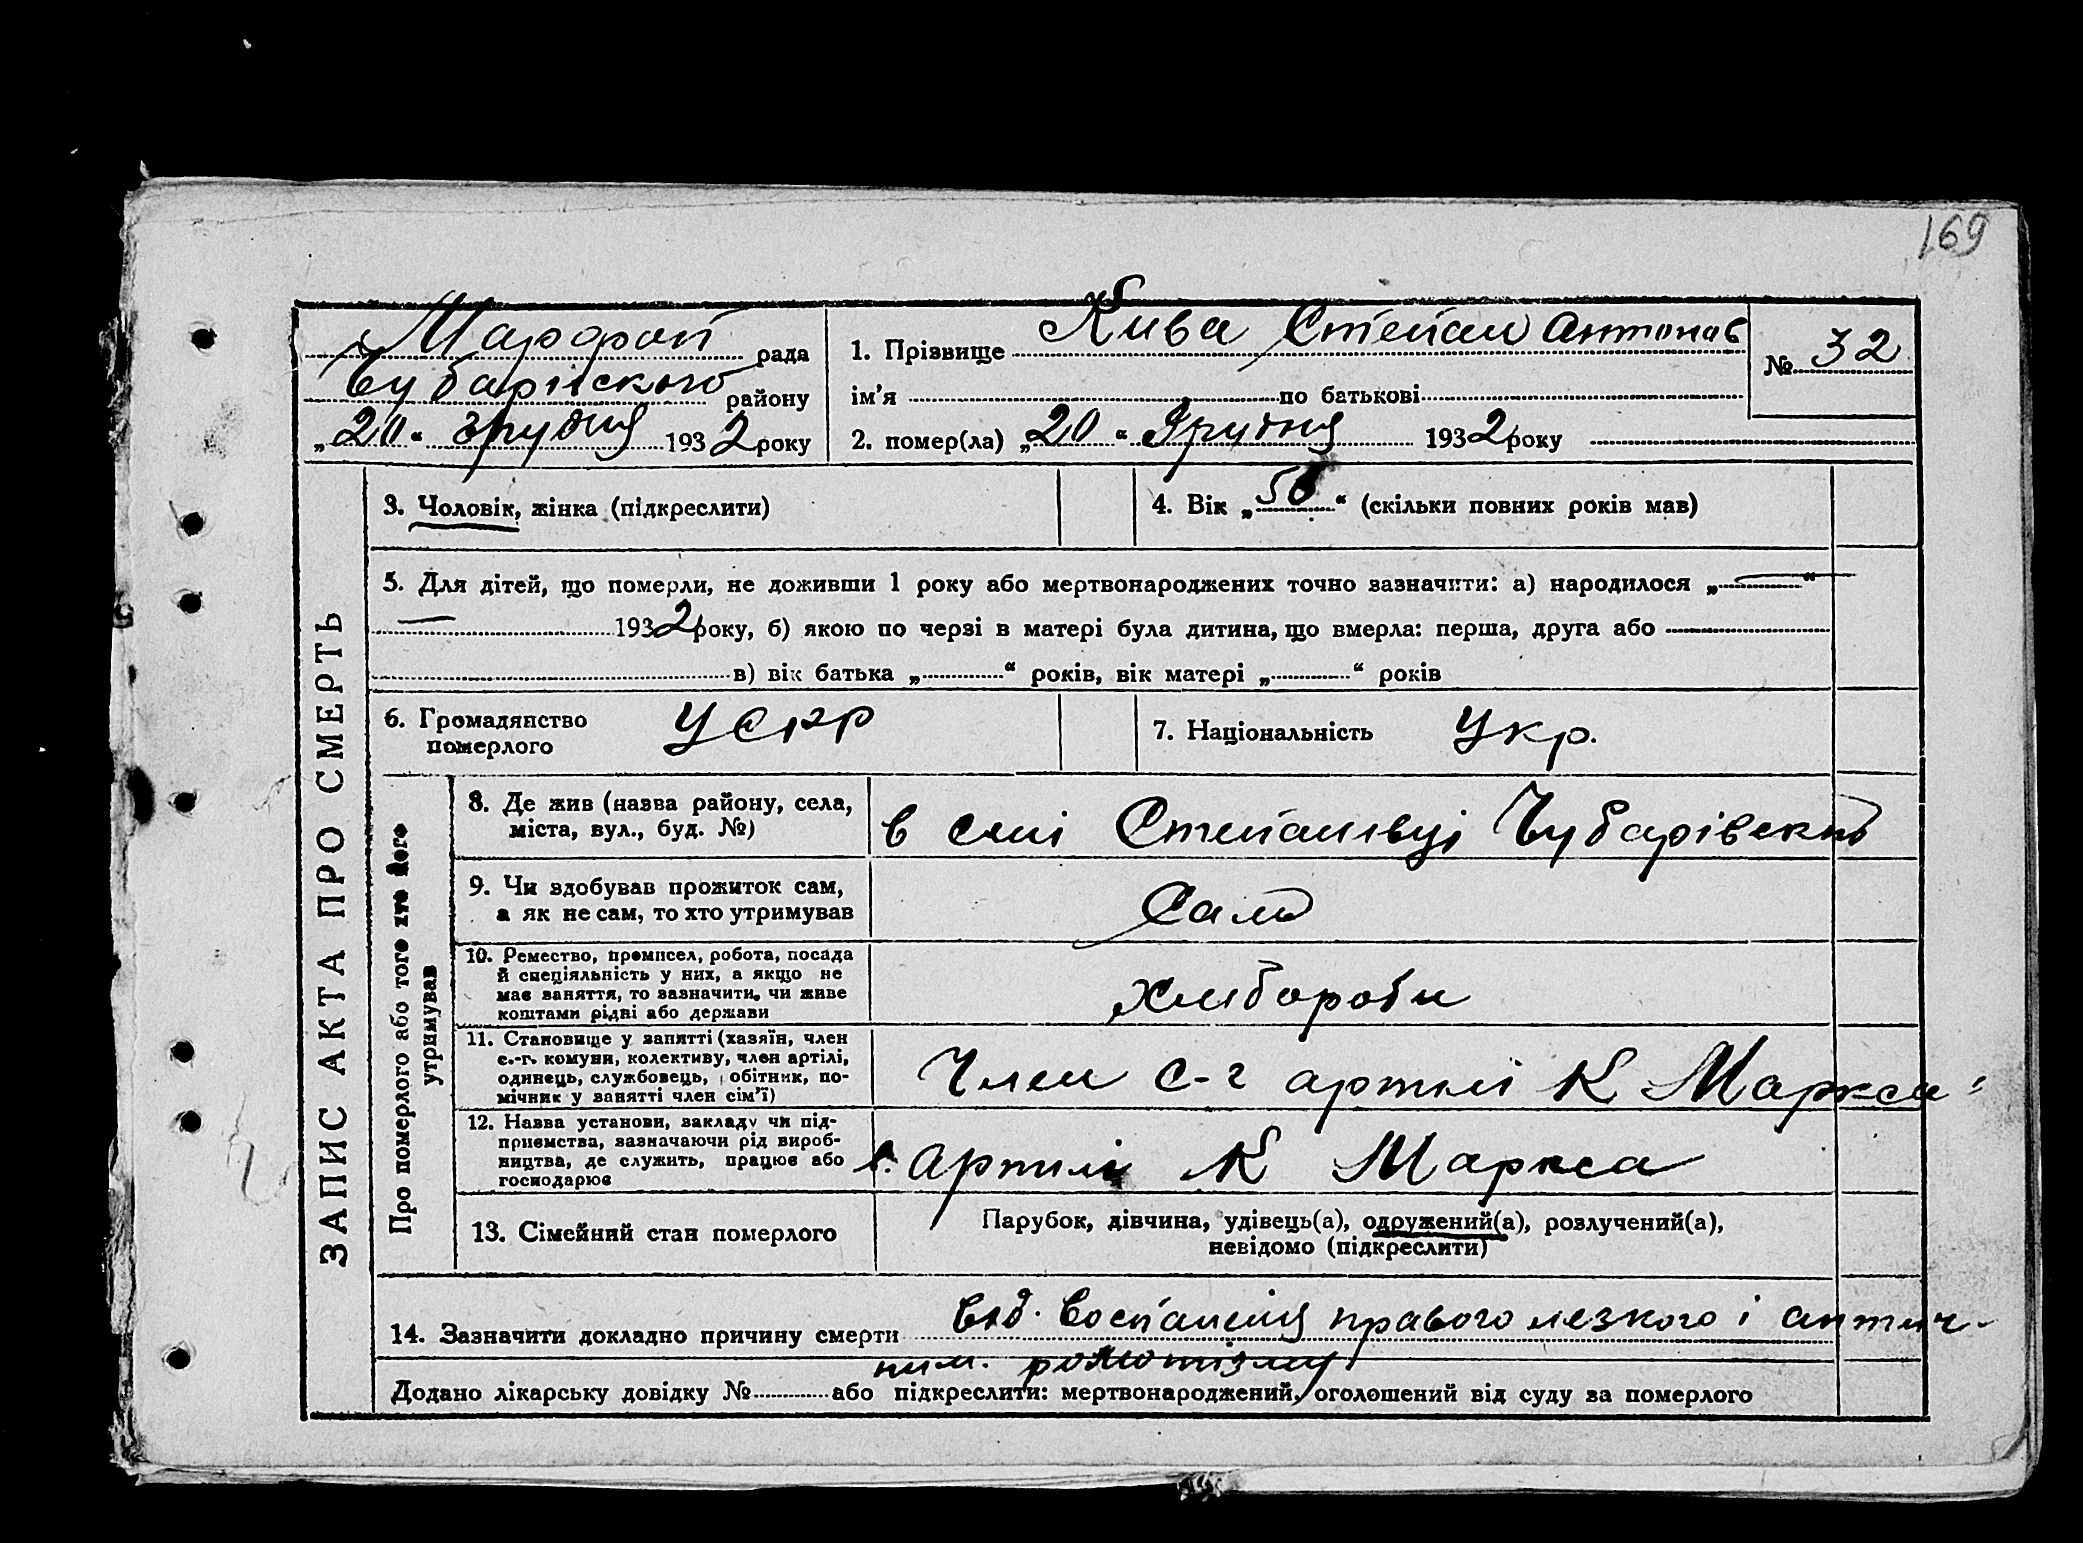 169
Марфоп рада
Чубарівського району
„20“ грудня 1932 року
1. Прізвище Кива Степан Антонов
ім'я по батькові
№ 32
2. помер(ла) „20“ Грудня 1932 року
ЗАПИС АКТА ПРО СМЕРТЬ
3. Чоловік, жінка (підкреслити)
4. Вік „56“ (скільки повних років мав)
5. Для дітей, що померли, не доживши 1 року або мертвонароджених точно зазначити: а) народилося „—“
— 1932 року, б) якою по черзі в матері була дитина, що вмерла: перша, друга або
в) вік батька „ “ років, вік матері „ “ років
6. Громадянство
померлого
УСРР
7. Національність Укр.
Про померлого або того хто його
утримував
8. Де жив (назва району, села,
міста, вул., буд. №)
в селі Степанівці Чубарівский
9. Чи здобував прожиток сам,
а як не сам, то хто утримував
Сам
10. Ремество, промисел, робота, посада
й спеціяльність у них, а якщо не
має заняття, то зазначити, чи живе
коштами рідні або держави
Хлібороби
11. Становище у занятті (хазяїн, член
с.-г. комуни, колективу, член артілі,
одинець, службовець, обітник, по-
мічник у занятті член сім'ї)
Член с-г артілі К Маркса
12. Назва установи, закладу чи під-
приємства, зазначаючи рід вироб-
ництва, де служить, працює або
господарює
в. артилі К Маркса
13. Сімейний стан померлого
Парубок, дівчина, удівець(а), одружений(а), розлучений(а),
невідомо (підкреслити)
14. Зазначити докладно причину смерти від. воспаленія правого легкого і
Додано лікарську довідку № або підкреслити: мертвонароджений, оголошений від суду за померлого